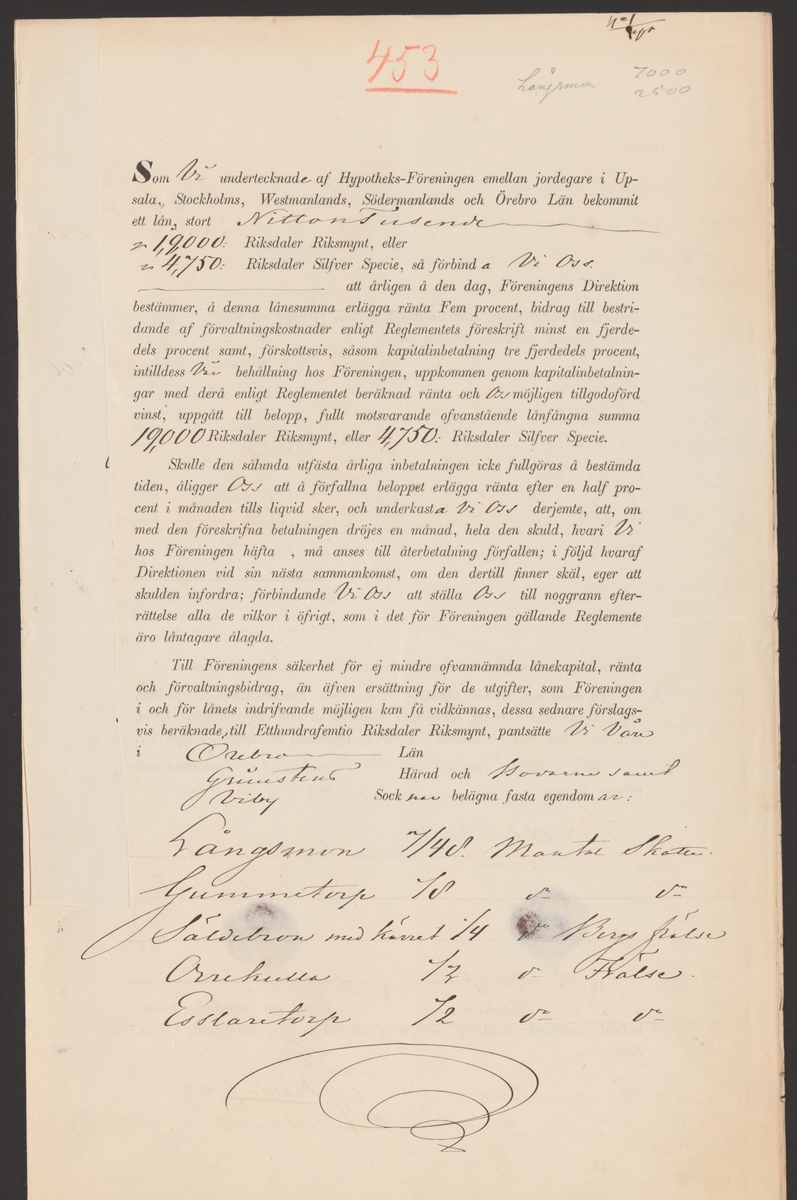 453
Långsmon 7000
2500
Som Vi undertecknade af Hypotheks-Föreningen emellan jordegare i Up-
sala, Stockholms, Westmanlands, Södermanlands och Örebro Län bekommit
ett lån, stort Nitton Tusende
19,000: Riksdaler Riksmynt, eller
4,750: Riksdaler Silfver Specie, så förbinda Vi Oss
att årligen å den dag, Föreningens Direktion
bestämmer, å denna lånesumma erlägga ränta Fem procent, bidrag till bestri-
dande af förvaltningskostnader enligt Reglementets föreskrift minst en fjerde-
dels procent samt, förskottsvis, såsom kapitalinbetalning tre fjerdedels procent,
intilldess Vår behållning hos Föreningen, uppkommen genom kapitalinbetalnin-
gar med derå enligt Reglementet beräknad ränta och oss möjligen tillgodoförd
vinst, uppgått till belopp, fullt motsvarande ofvanstående lånfångna summa
19,000 Riksdaler Riksmynt, eller 4,750: Riksdaler Silfver Specie.
Skulle den sålunda utfästa årliga inbetalningen icke fullgöras å bestämda
tiden, åligger Oss att å förfallna beloppet erlägga ränta efter en half pro-
cent i månaden tills liqvid sker, och underkasta Vi Oss derjemte, att, om
med den föreskrifna betalningen dröjes en månad, hela den skuld, hvari Vi
hos Föreningen häfta , må anses till återbetalning förfallen; i följd hvaraf
Direktionen vid sin nästa sammankomst, om den dertill finner skäl, eger att
skulden infordra; förbindande Vi Oss att ställa Oss till noggrann efter-
rättelse alla de vilkor i öfrigt, som i det för Föreningen gällande Reglemente
äro låntagare ålagda.
Till Föreningens säkerhet för ej mindre ofvannämnda lånekapital, ränta
och förvaltningsbidrag, än äfven ersättning för de utgifter, som Föreningen
i och för lånets indrifvande möjligen kan få vidkännas, dessa sednare förslags-
vis beräknade, till Etthundrafemtio Riksdaler Riksmynt, pantsätte Vi Våra
i Örebro Län
Grimstens Härad och Hovarne samt
Viby Socknar belägna fasta egendomar:
Långsmon 7/48. Mantal Skatte.
Gummetorp 1/8 do do
Säldebron med Kärret 1/4 do Bergs frälse
Orrekulla 1/2 do Frälse.
Esslaretorp 1/2 do do